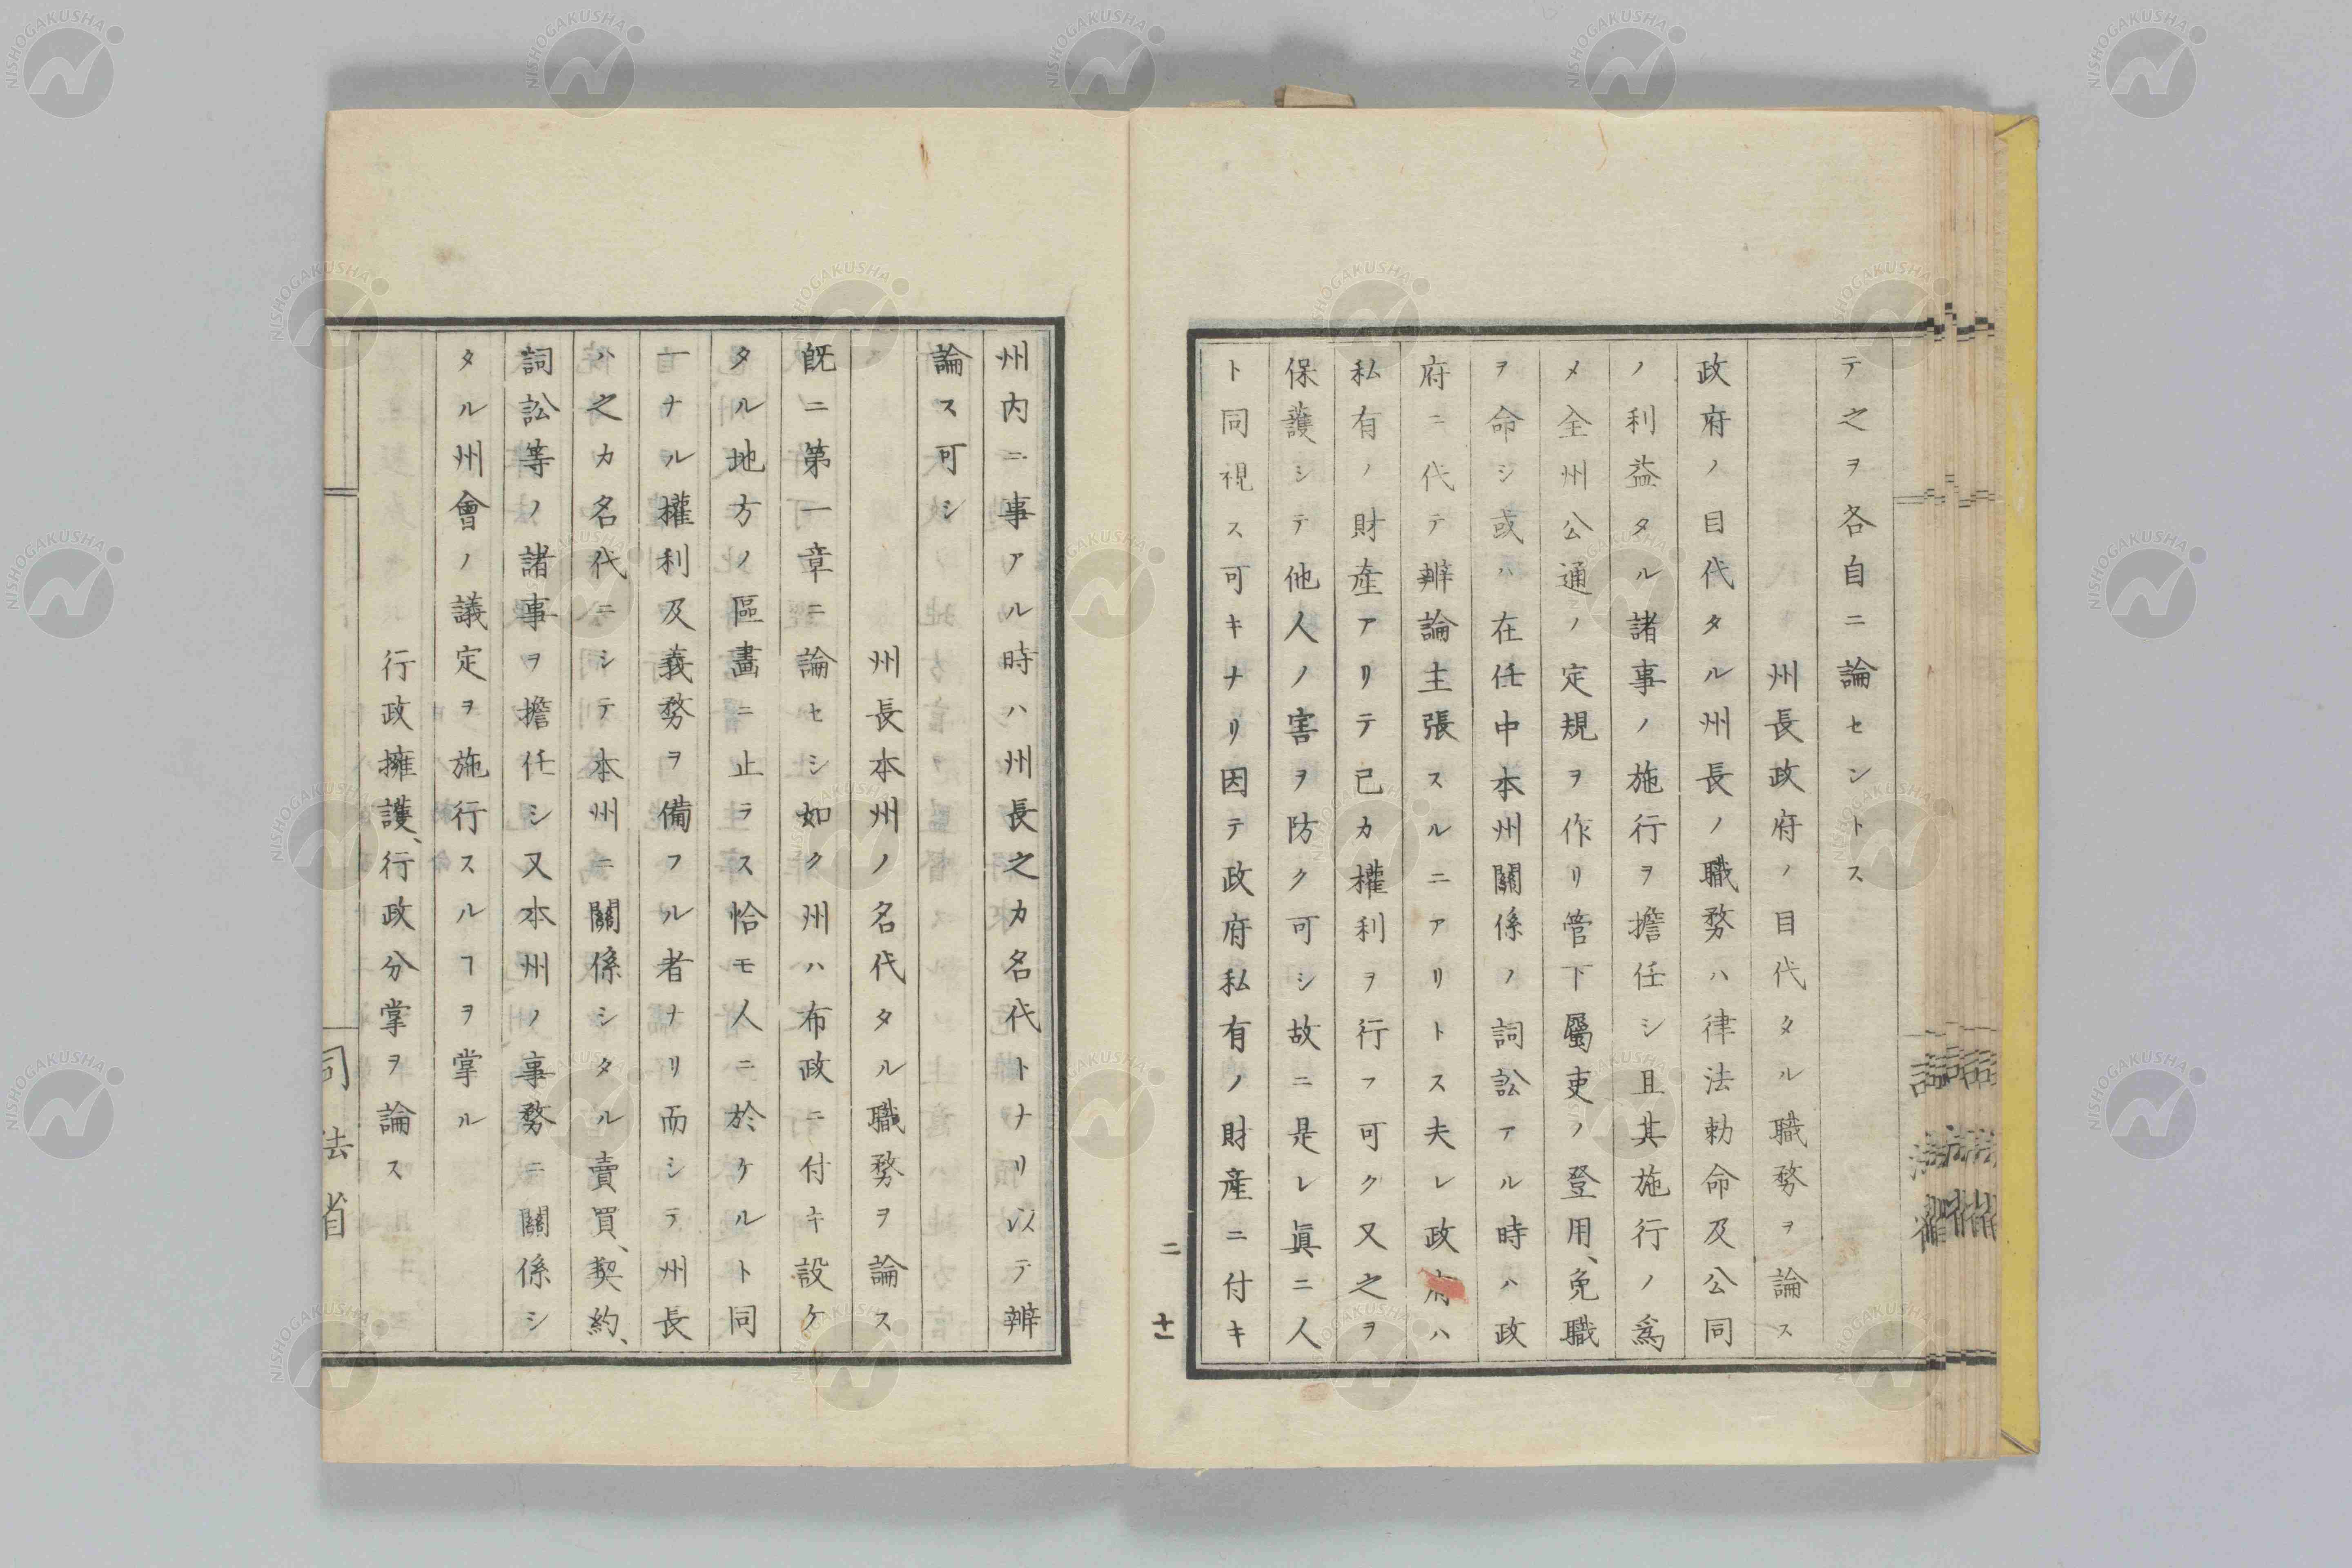 テ之ヲ各自ニ論セントス
州長政府ノ目代タル職務ヲ論ス
政府ノ目代タル州長ノ職務ハ律法勅命及公同
ノ利益タル諸事ノ施行ヲ擔任シ且其施行ノ爲
メ全州公通ノ定規ヲ作リ管下屬吏ノ登用、免職
ヲ命シ或ハ在任中本州關係ノ詞訟アル時ハ政
府ニ代テ辨論主張スルニアリトス夫レ政府ハ
私有ノ財產アリテ己カ權利ヲ行フ可ク又之ヲ
保護シテ他人ノ害ヲ防ク可シ故ニ是レ眞ニ人
ト同視ス可キナリ因テ政府私有ノ財產ニ付キ
二
十一
州内ニ事アル時ハ州長之カ名代トナリ以テ辨
論ス可シ
州長本州ノ名代タル職務ヲ論ス
既ニ第一章ニ論セシ如ク州ハ布政ニ付キ設ケ
タル地方ノ區畫ニ止ラス恰モ人ニ於ケルト同
一ナル權利及義務ヲ備フル者ナリ而シテ州長
ハ之カ名代ニシテ本州ニ關係シタル賣買、契約、
詞訟等ノ諸事ヲ擔任シ又本州ノ事務ニ關係シ
タル州會ノ議定ヲ施行スルヿヲ掌ル
行政擁護、行政分掌ヲ論ス
司法省
NISHOGAKUSHA